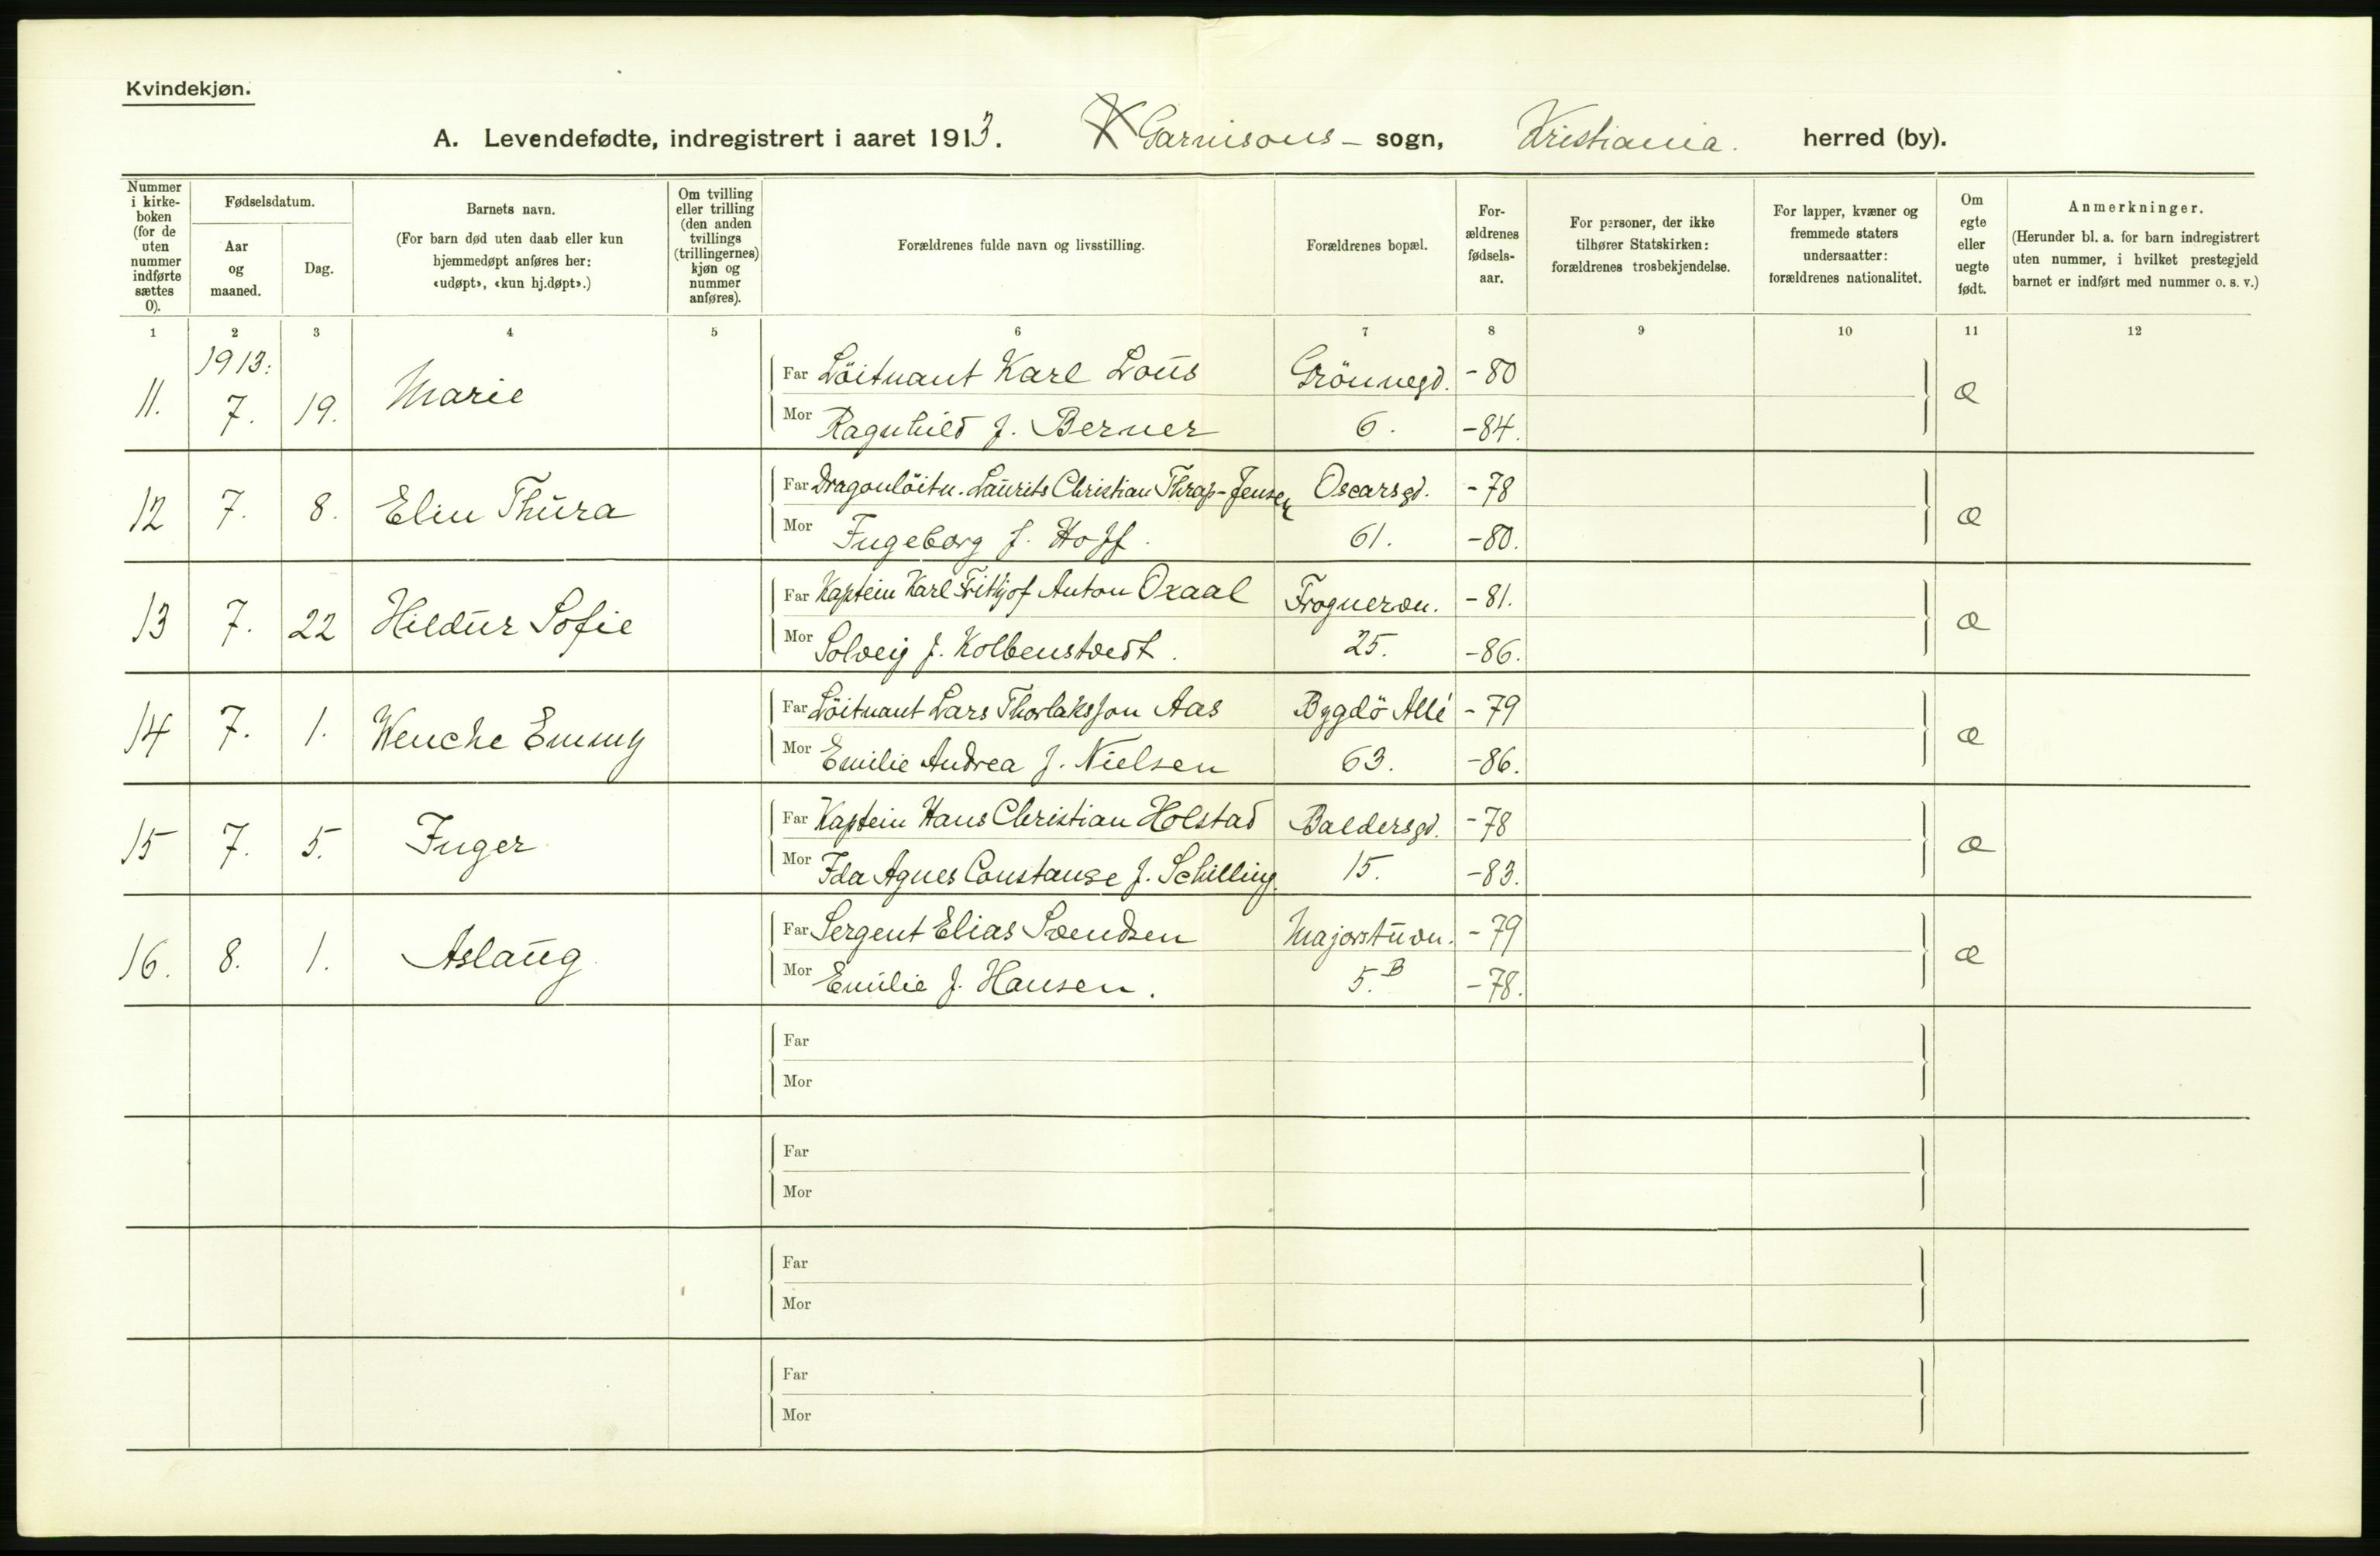 Kvindekjøn.
A. Levendefødte, indregistrert i aaret 1913. Garnisons- sogn, Kristiania. herred (by).
Nummer i kirke-boken (for de uten nummer indførte sættes 0).
Fødselsdatum.
Aar og maaned.
Dag.
Barnets navn.
(For barn død uten daab eller kun hjemmedøpt anføres her: «udøpt», «kun hj.døpt».)
Om tvilling eller trilling (den anden tvillings (trillingernes) kjøn og nummer anføres).
Forældrenes fulde navn og livsstilling.
Forældrenes bopæl.
For-ældrenes fødsels-aar.
For personer, der ikke tilhører Statskirken: forældrenes trosbekjendelse.
For lapper, kvæner og fremmede staters undersaatter: forældrenes nationalitet.
Om egte eller uegte født.
Anmerkninger.
(Herunder bl. a. for barn indregistrert uten nummer, i hvilket prestegjeld barnet er indført med nummer o. s. v.)
1 2 3 4 5 6 7 8 9 10 11 12
1913:
11. 7. 19. Marie Far Löitnant Karl Lous Grönnegd. -80 æ
Mor Ragnhild f. Berner 6. -84.
12 7. 8. Elin Thura Far Dragonlöitn. Laurits Christian Thrap-Jensen Oscarsgd. -78 æ
Mor Ingeborg f. Hoff. 61. -80.
13 7. 22 Hildur Sofie Far Kaptein Karl Frithjof Anton Oxaal Frognervn. -81. æ
Mor Solveig f. Kolbenstvedt. 25. -86.
14 7. 1. Wenche Emmy Far Löitnant Lars Thorlaksson Aas Bygdö Allé -79 æ
Mor Emilie Andrea f. Nielsen 63. -86.
15 7. 5. Inger Far Kaptein Hans Christian Holstad Baldersgd. -78 æ
Mor Ida Agnes Constanse f. Schilling. 15. -83.
16. 8. 1. Aslaug Far Sergent Elias Svendsen Majorstuvn. -79 æ
Mor Emilie f. Hansen. 5.B -78.
Far
Mor
Far
Mor
Far
Mor
Far
Mor